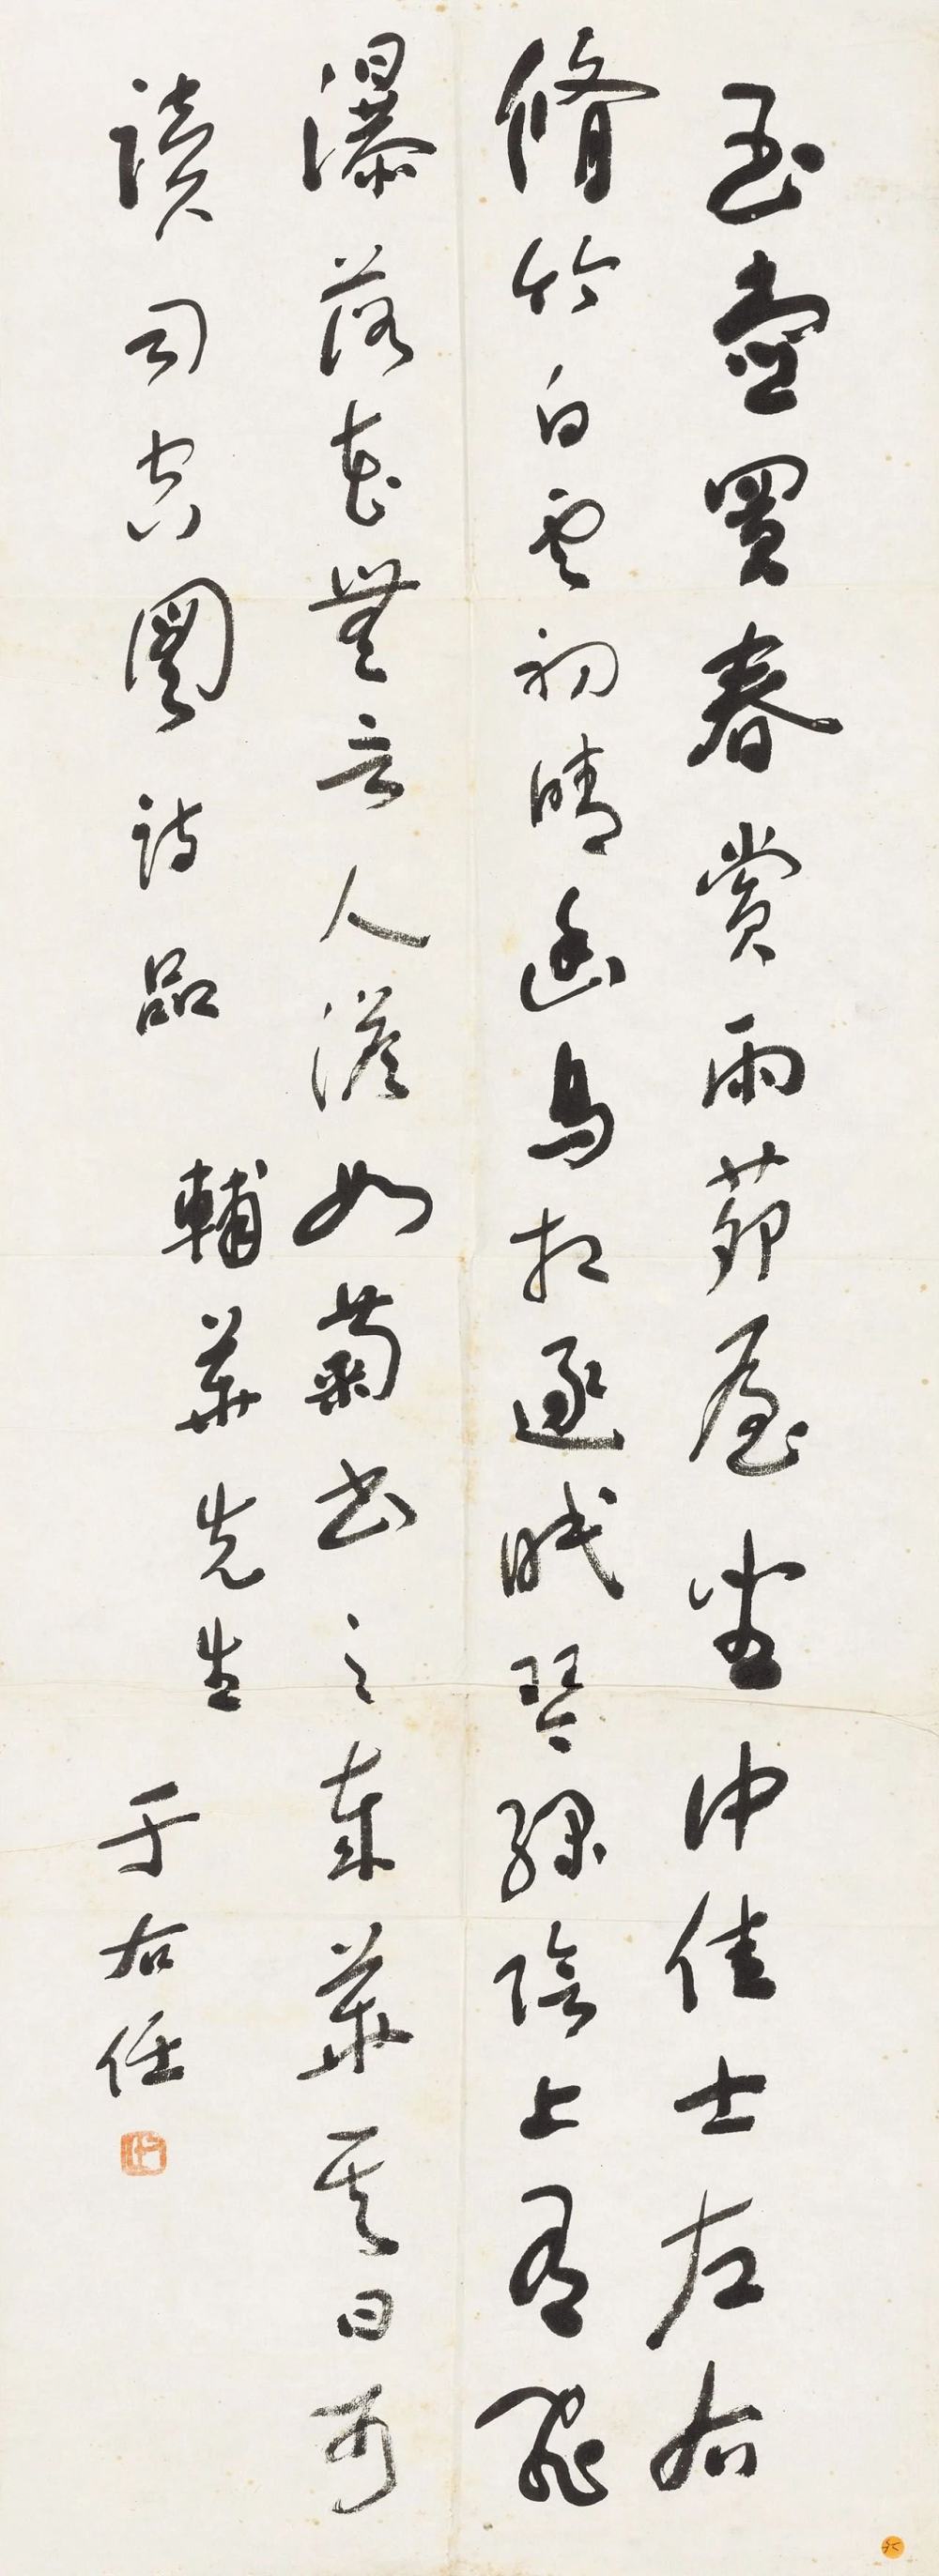 玉壺買春賞雨茆屋坐中佳士左右
脩竹白雲初晴幽鳥相逐眠琴綠陰上有飛
瀑落花無言人淡如菊書之歲華其曰可
讀司空圖詩品
輔華先生
于右任